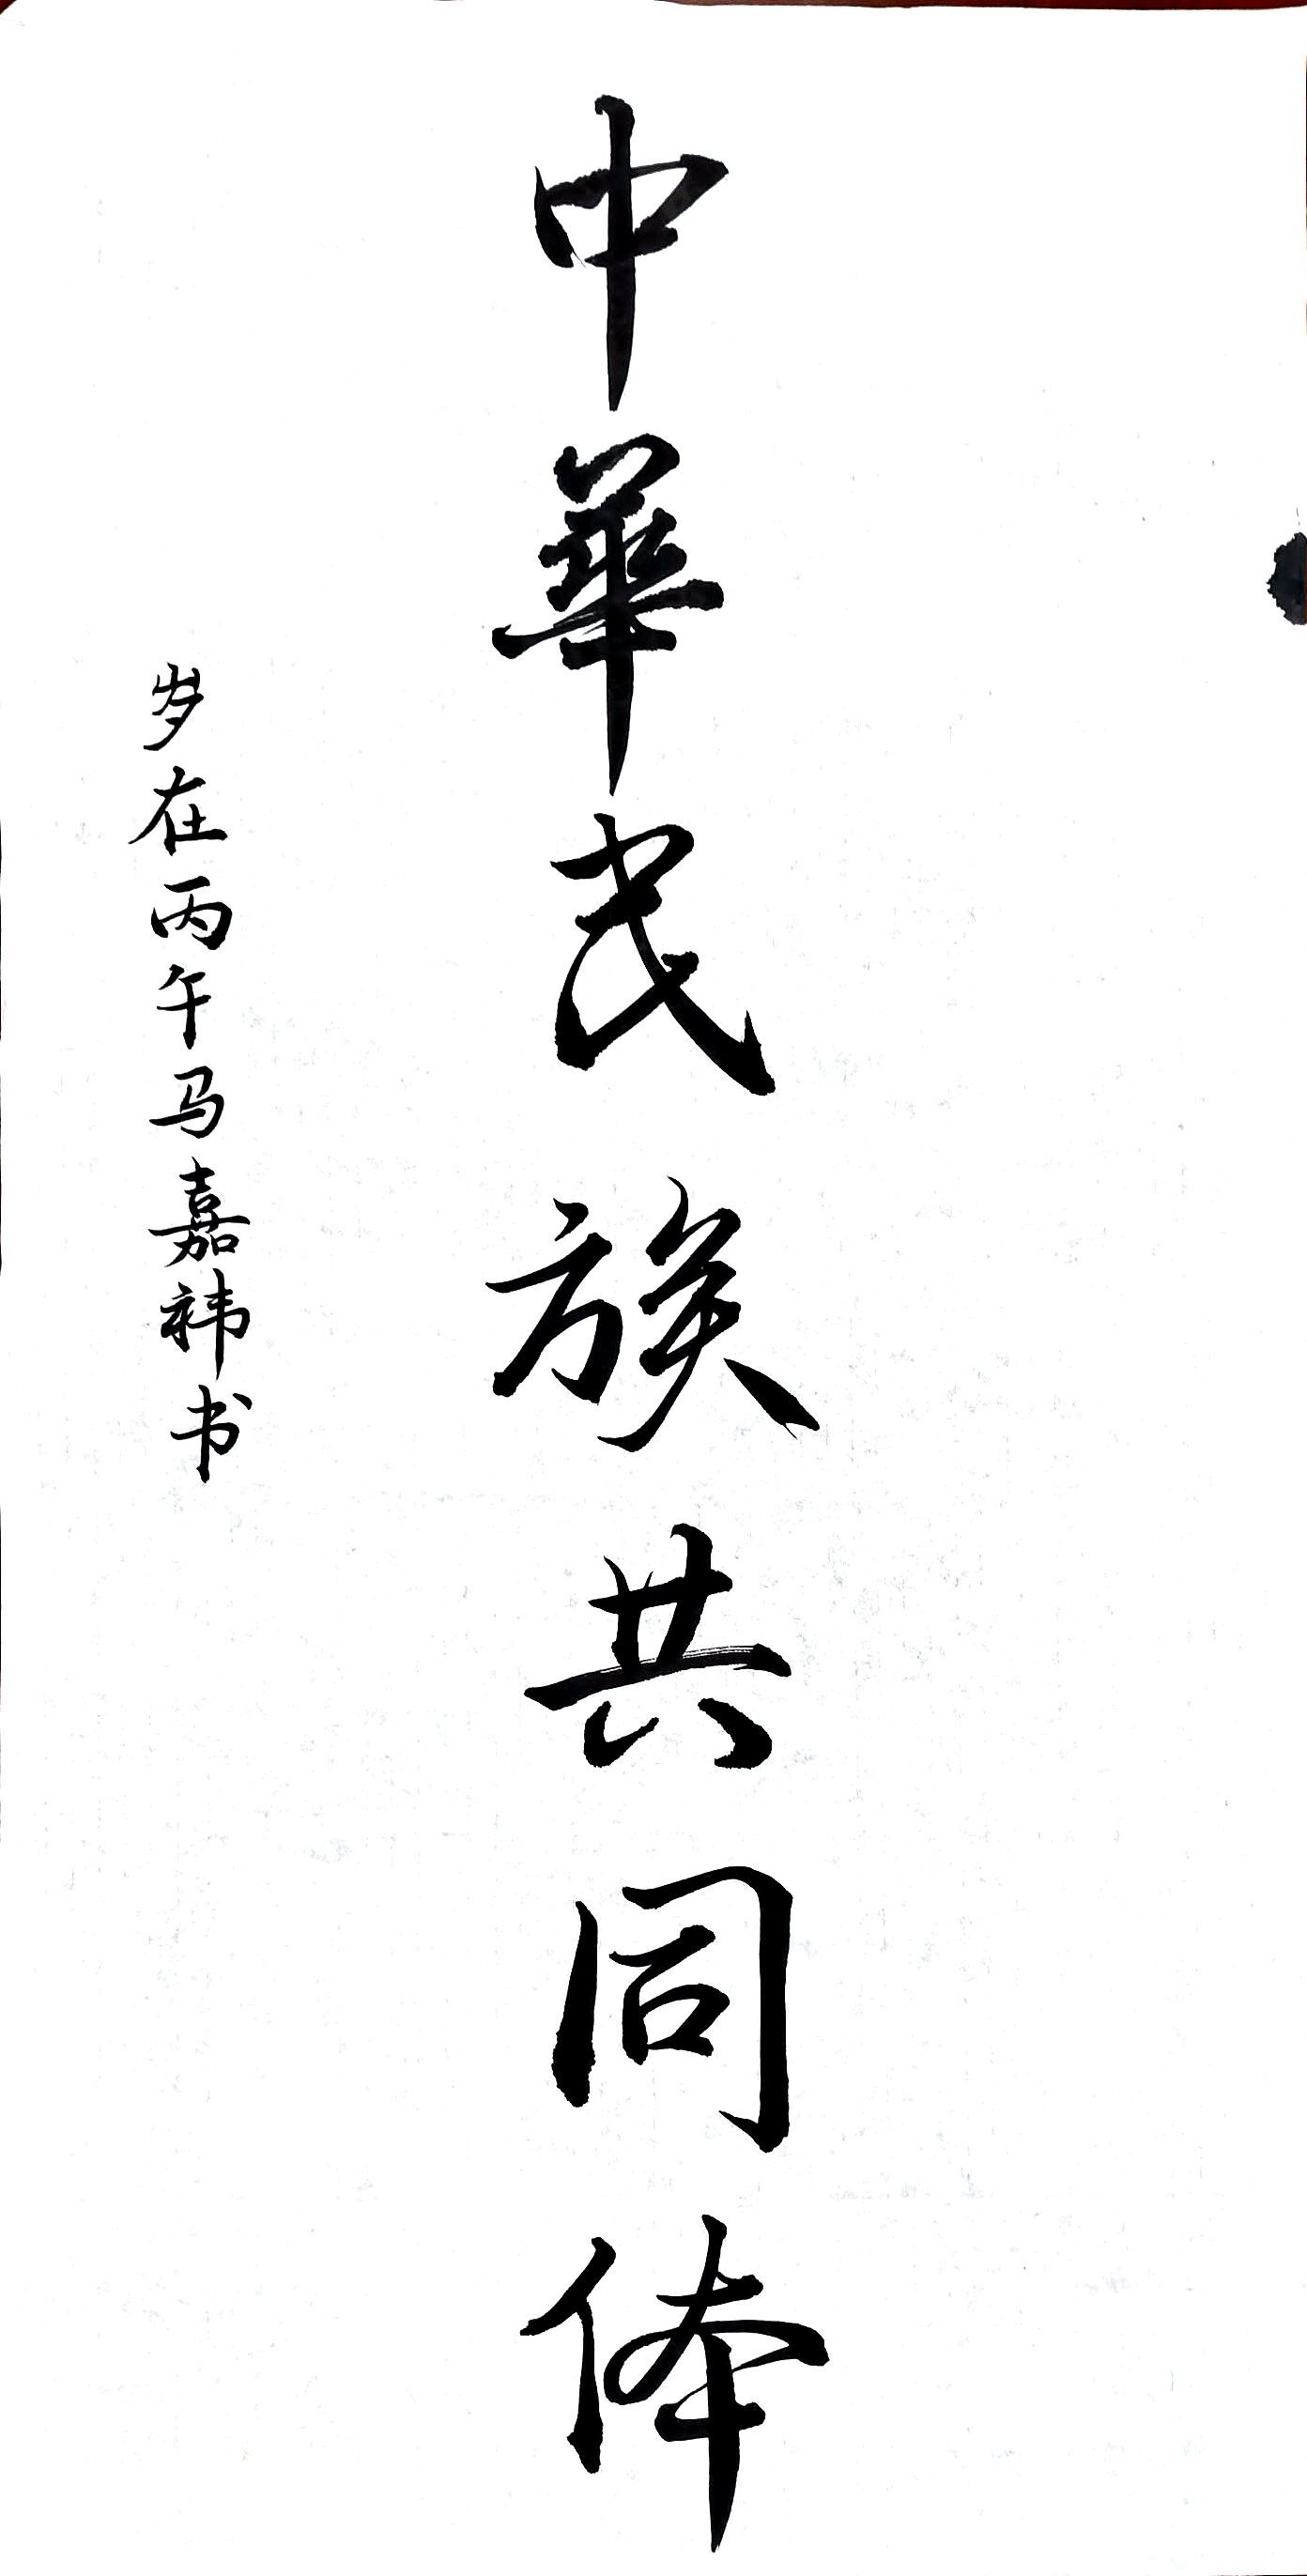 中華民族共同体
岁在丙午马嘉祎书